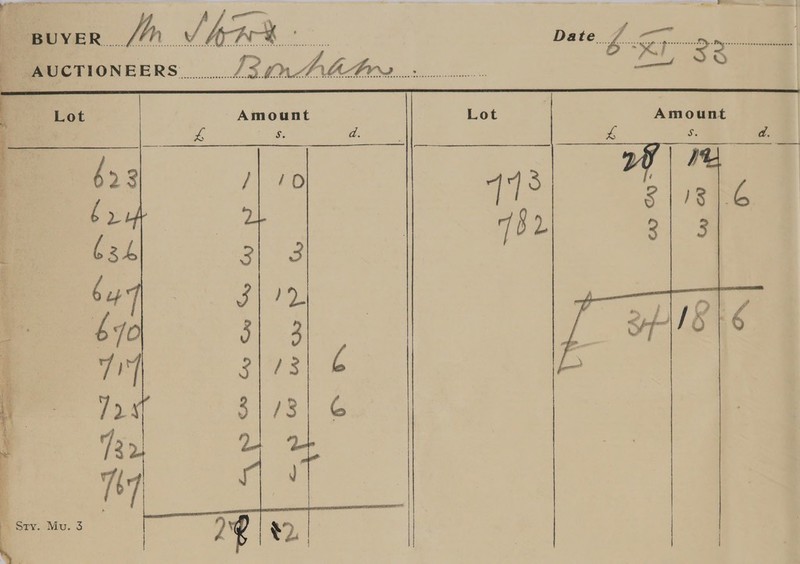 BUYER Mr
Date 6 XI 33
AUCTIONEERS Bonham
Lot Amount
£ s. d.
623 1 10
624 2
636 3 3
647 3 12
670 3 3
717 3 13 6
725 3 13 6
732 2 2
767 5 5
28 12
Sty. Mu. 3
Lot Amount
£ s. d.
28 12
773 3 13 6
782 3 3
£ 34 18 6